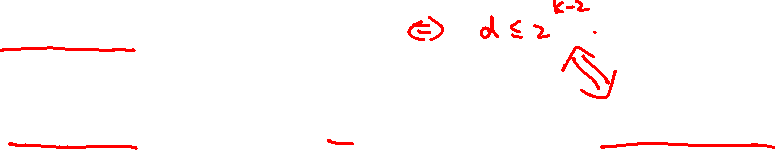 ⇔ d ≤ 2^{k-2}.
⇕